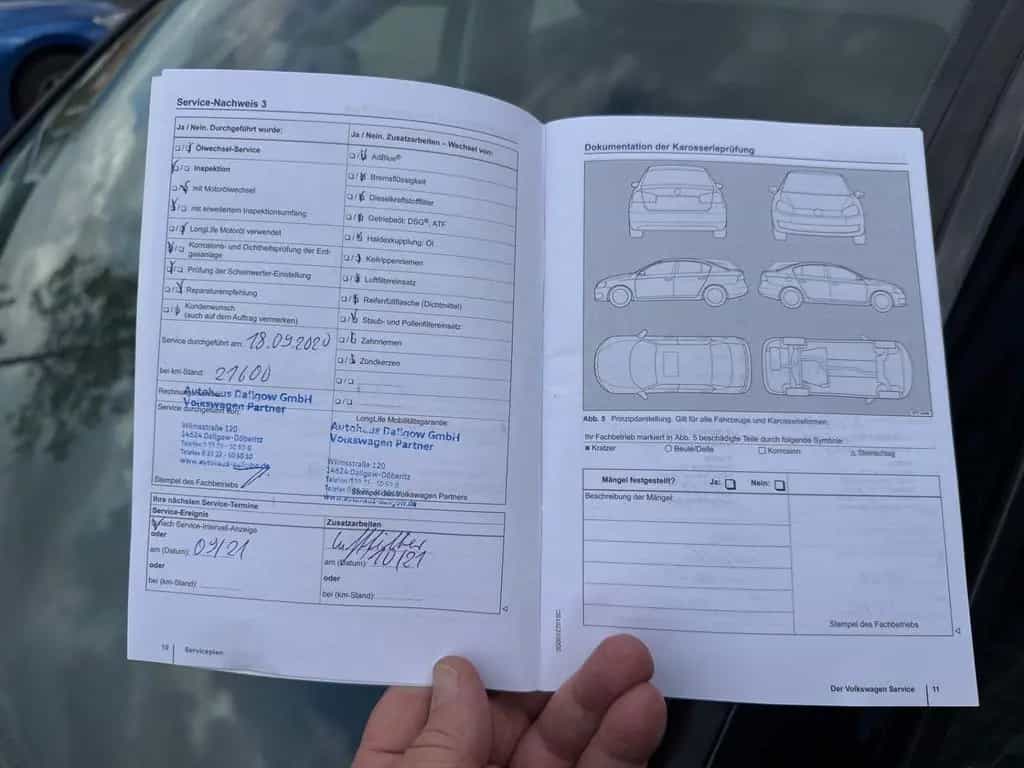 Service-Nachweis 3
Ja / Nein. Durchgeführt wurde:
Ölwechsel-Service
Inspektion
mit Motorölwechsel
mit erweitertem Inspektionsumfang
LongLife Motoröl verwendet
Korrosions- und Dichtheitsprüfung der Erd-
gasanlage
Prüfung der Scheinwerfer-Einstellung
Reparaturempfehlung
Kundenwunsch
(auch auf dem Auftrag vermerken)
Service durchgeführt am: 18.09.2020
bei km-Stand: 21600
Autohaus Dallgow GmbH
Volkswagen Partner
Service durchgeführt von:
Wilmsstraße 120
14624 Dallgow-Döberitz
Stempel des Fachbetriebs
Ja / Nein. Zusatzarbeiten – Wechsel von:
AdBlue®
Bremsflüssigkeit
Dieselkraftstofffilter
Getriebeöl: DSG®, ATF
Haldexkupplung: Öl
Keilrippenriemen
Luftfiltereinsatz
Reifenfüllflasche (Dichtmittel)
Staub- und Pollenfiltereinsatz
Zahnriemen
Zündkerzen
LongLife Mobilitätsgarantie:
Autohaus Dallgow GmbH
Volkswagen Partner
Wilmsstraße 120
14624 Dallgow-Döberitz
Stempel des Volkswagen Partners
Ihre nächsten Service-Termine
Service-Ereignis
nach Service-Intervall-Anzeige
oder
am (Datum): 09/21
oder
bei (km-Stand):
Zusatzarbeiten
Luftfilter
am (Datum): 10/21
oder
bei (km-Stand):
10 Serviceplan
Dokumentation der Karosserieprüfung
Abb. 5 Prinzipdarstellung. Gilt für alle Fahrzeuge und Karosserieformen.
Ihr Fachbetrieb markiert in Abb. 5 beschädigte Teile durch folgende Symbole:
Kratzer Beule/Delle Korrosion Steinschlag
Mängel festgestellt? Ja: Nein:
Beschreibung der Mängel:
Stempel des Fachbetriebs
Der Volkswagen Service 11